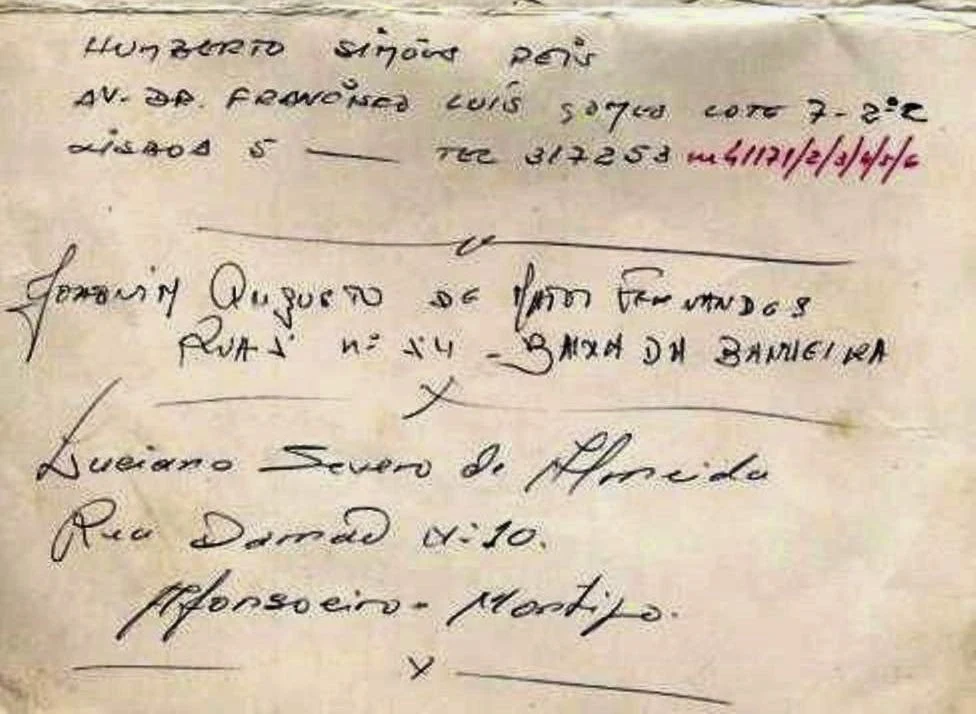 HUMBERTO SIMÕES REIS
AV. DR. FRANCISCO LUÍS GOMES LOTE 7-2º E
LISBOA 5 — TEL 317253 41171/2/3/4/5/6
JOAQUIM AUGUSTO DE MATOS FERNANDES
RUA nº 54 - BAIXA DA BANHEIRA
X
Luciano Severo de Almeida
Rua Damão Nº 10.
Afonsoeiro - Montijo.
X